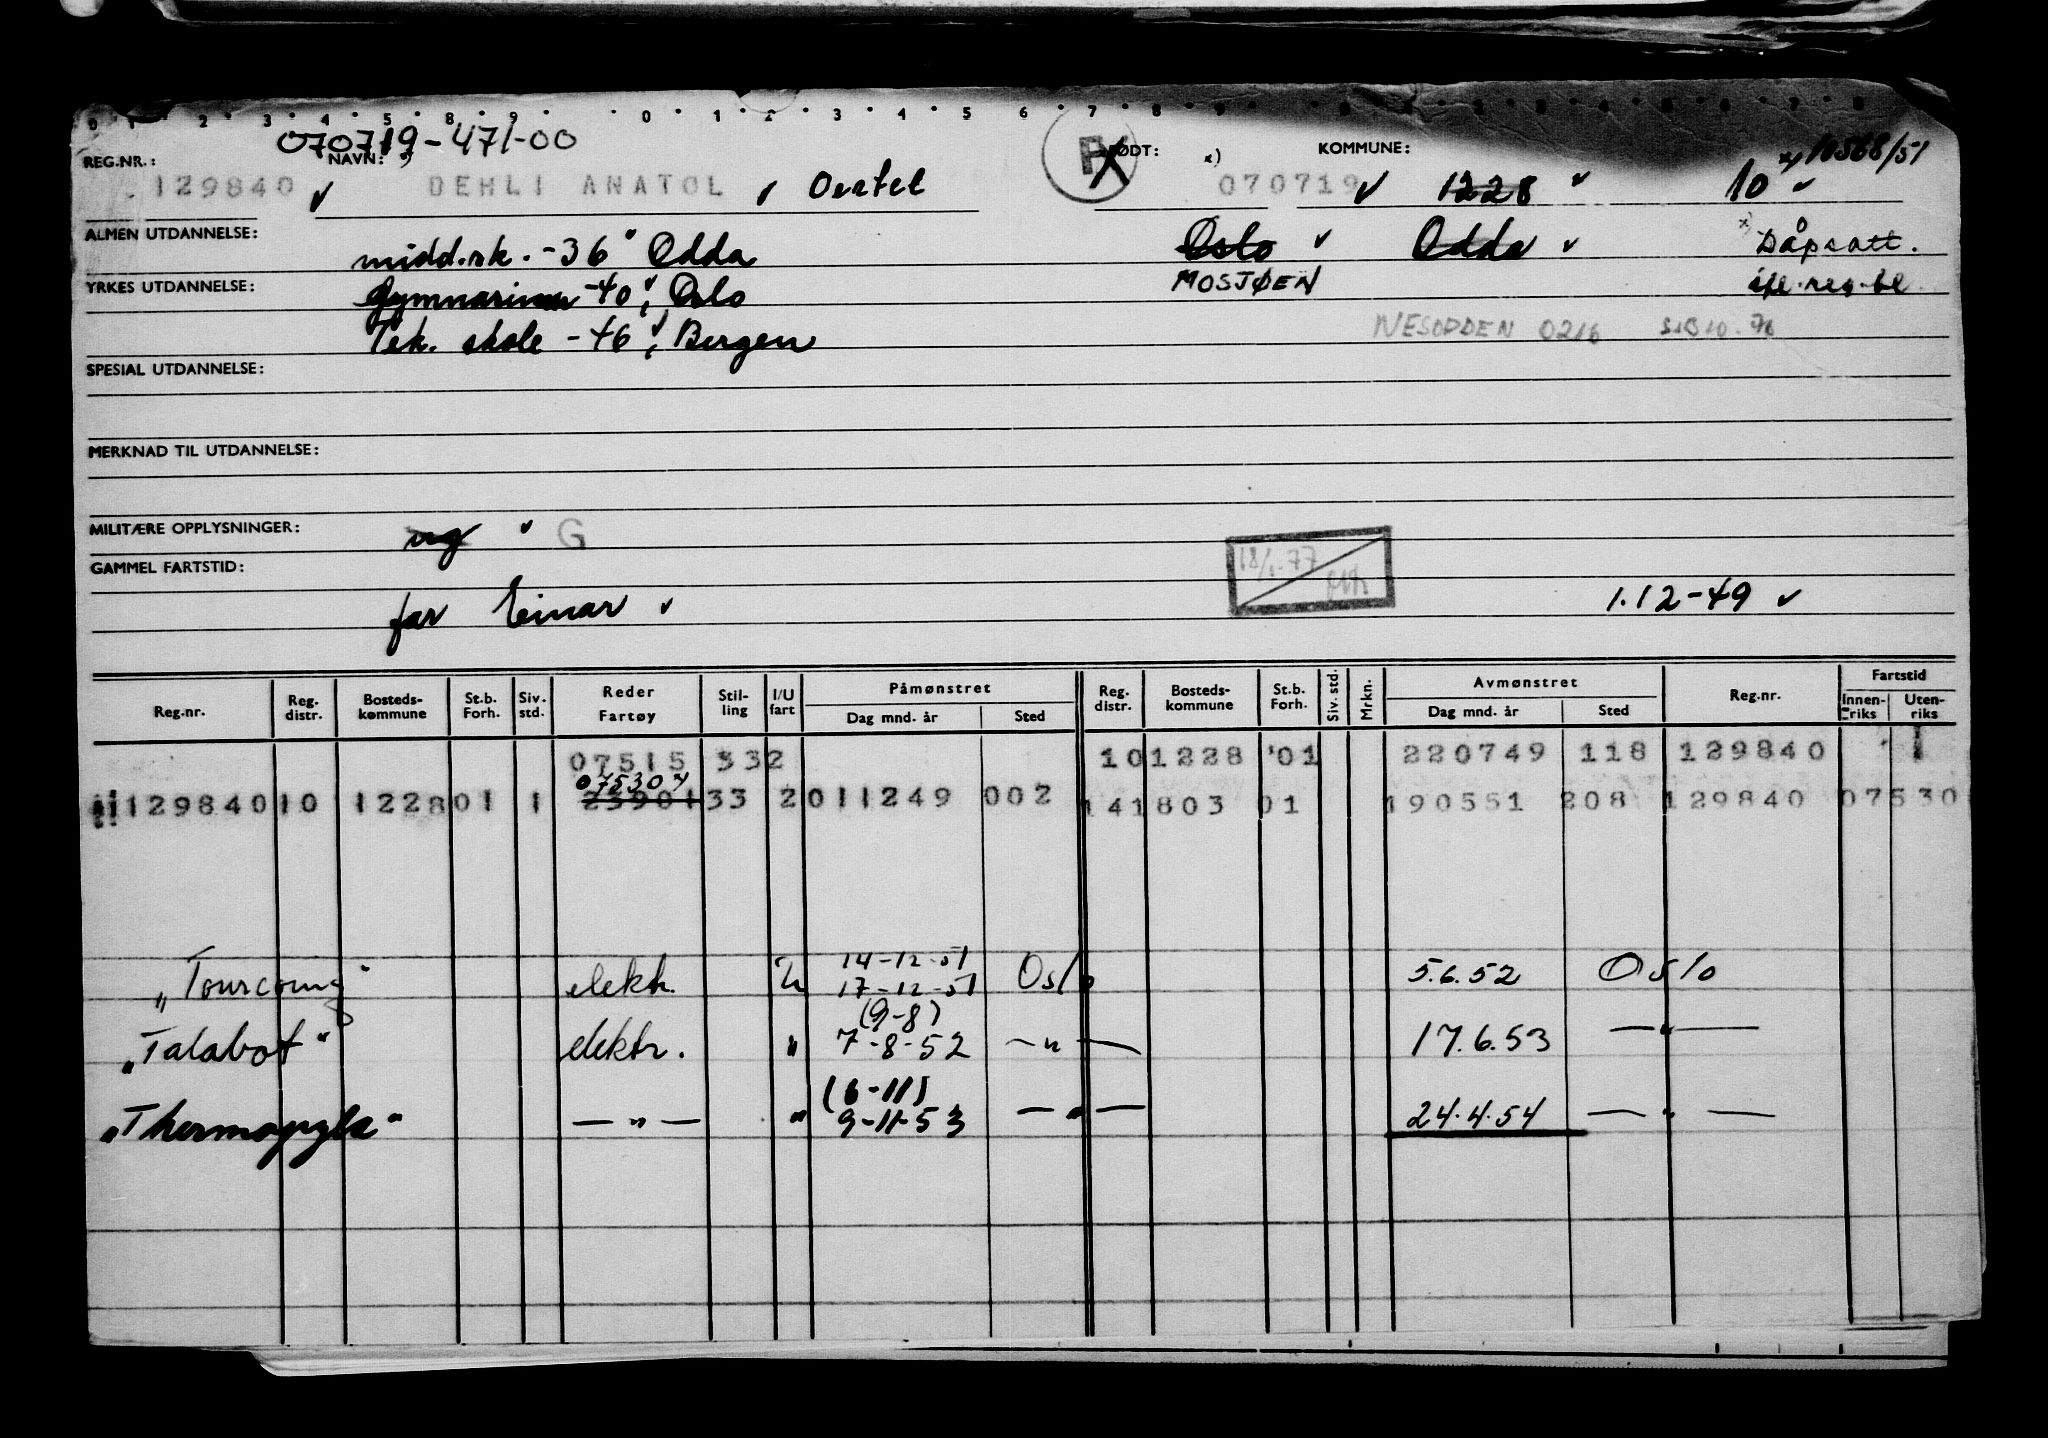 0 1 2 3 4 5 8 9 0 1 2 3 4 5 6 7 8 9
070719-471-00
REG.NR.: NAVN: *) FØDT: x) KOMMUNE: x) 10568/51
129840 v DEHLI ANATOL, Oertel 070719 v 1228 v 10 v
ALMEN UTDANNELSE: midd.sk. -36 v Odda Oslo v Odda v x) Dåpsatt.
YRKES UTDANNELSE: Gymnasium -40 v, Oslo MOSJØEN ifl. reg.bl
Tek. skole -46 v, Bergen NESODDEN 0216 S1B10-76
SPESIAL UTDANNELSE:
MERKNAD TIL UTDANNELSE:
MILITÆRE OPPLYSNINGER: ug v G
GAMMEL FARTSTID: 18/1-77
far Einar v 1.12-49 v
Reg.nr. Reg. distr. Bosteds- kommune St.b. Forh. Siv. std. Reder Fartøy Stil- ling I/U fart Påmønstret Dag mnd. år Sted Reg. distr. Bosteds- kommune St.b. Forh. Siv. std. Mrkn. Avmønstret Dag mnd. år Sted Reg.nr. Fartstid Innen- riks Uten- riks
07515 332 10 1228 01 220749 118 129840 1
075307
129840 10 1228 01 1 23901 33 2 011249 002 14 1803 01 190551 208 129840 07530
14-12-51
"Tourcoing" elektr. U 17-12-51 Oslo 5.6.52 Oslo
(9-8)
"Talabot" elektr. " 7-8-52 —"— 17.6.53 —"—
(6-11)
"Thermopylæ" —"— " 9-11-53 —"— 24.4.54 —"—